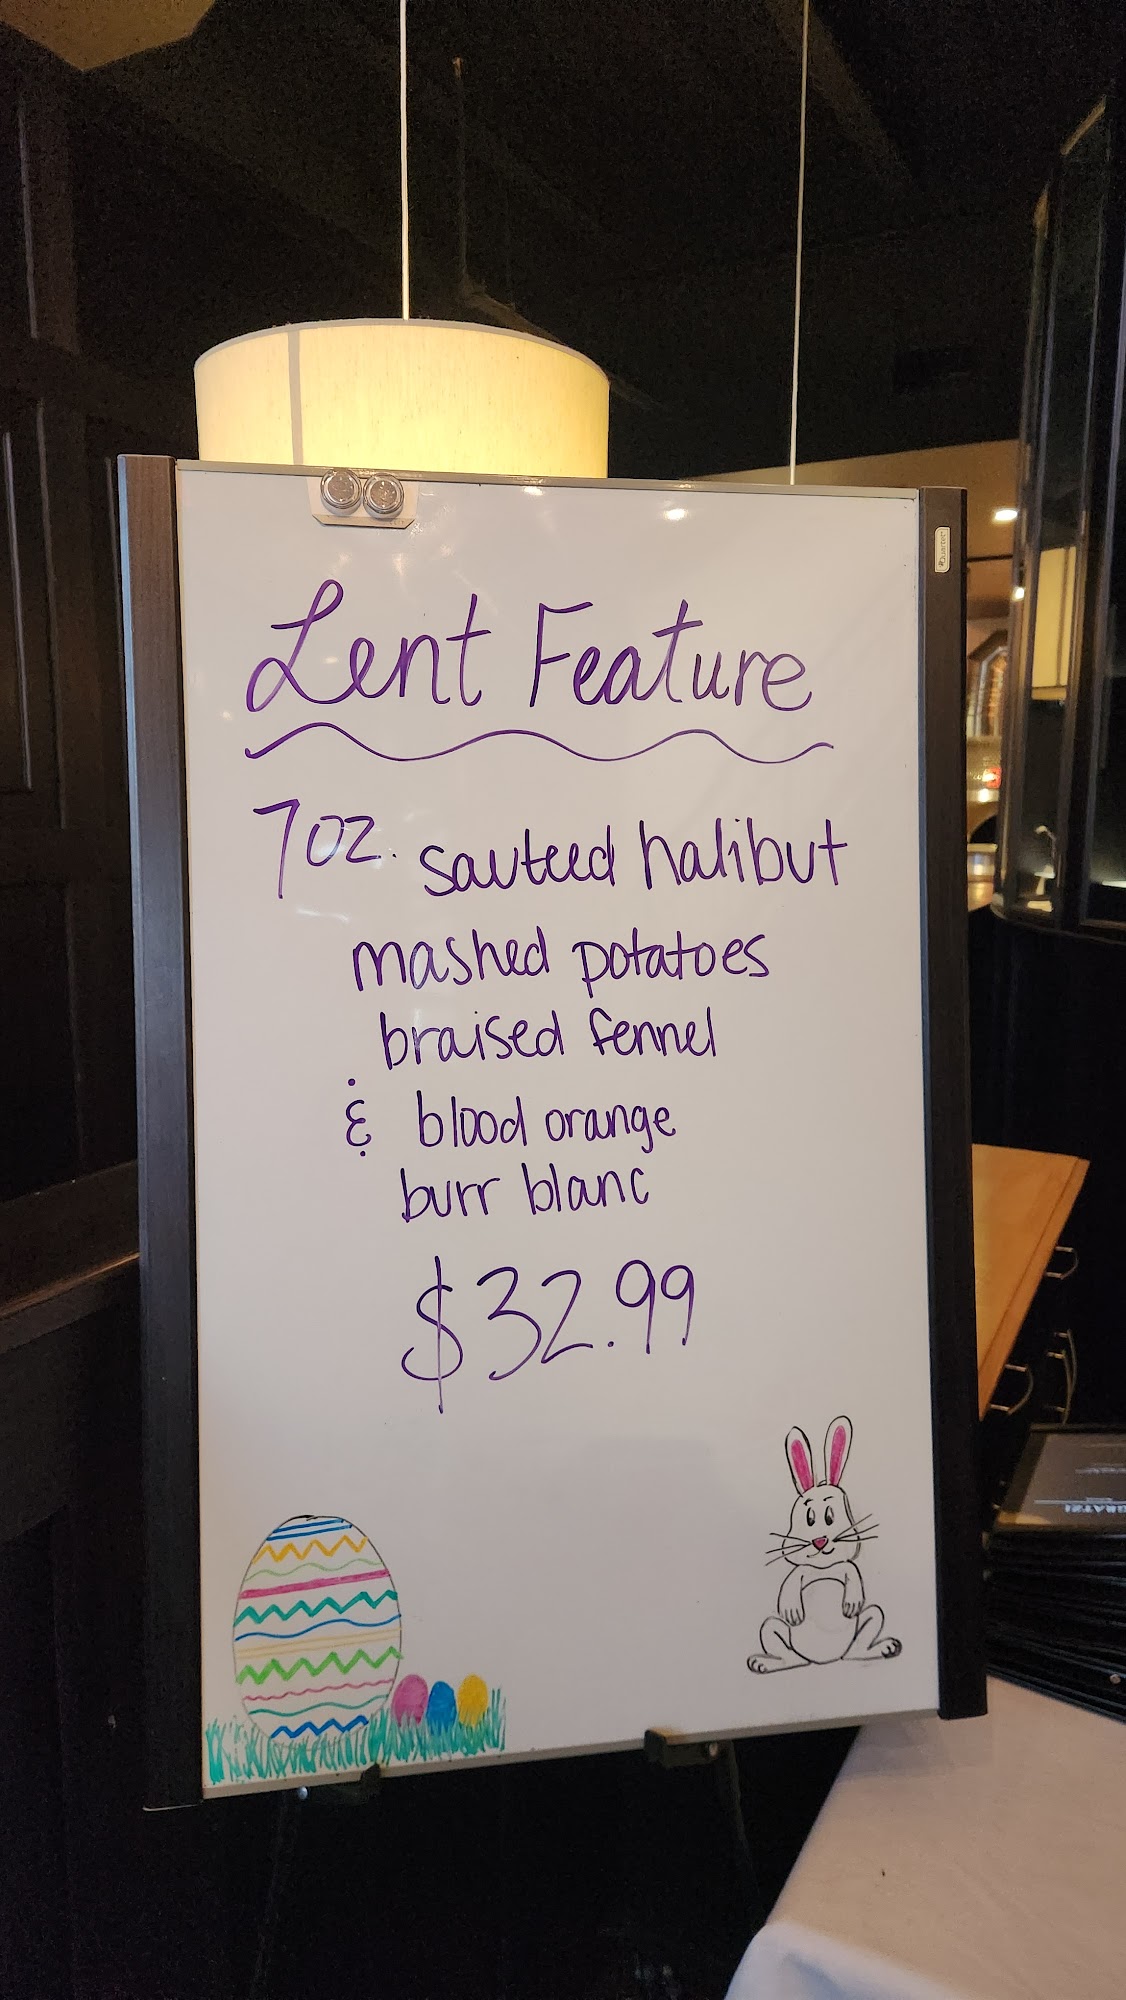 Lent Feature
7oz. sauteed halibut
mashed potatoes
braised fennel
& blood orange
burr blanc
$32.99
Quartet
GRATZI